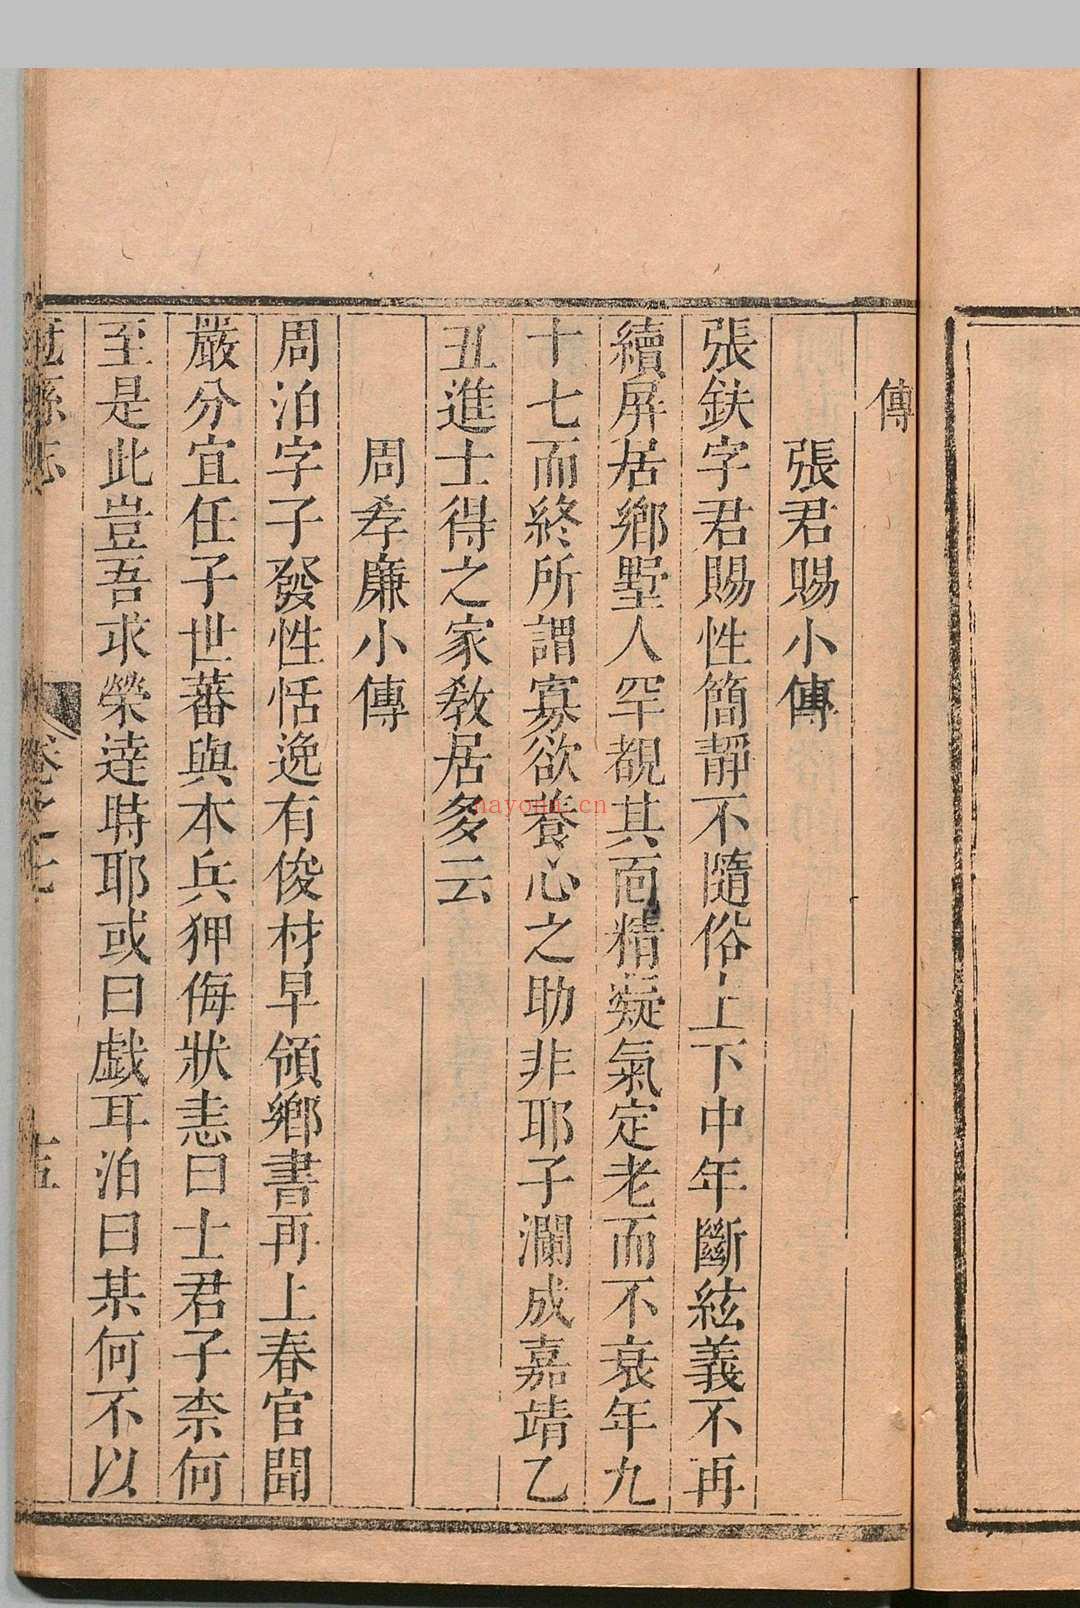 傳
張君賜小傳
張鈇字君賜性簡靜不隨俗上下中年斷絃義不再
續屏居鄉墅人罕覩其面精凝氣定老而不衰年九
十七而終所謂寡欲養心之助非耶子瀾成嘉靖乙
丑進士得之家教居多云
周孝廉小傳
周泊字子發性恬逸有俊材早領鄉書再上春官聞
嚴分宜任子世蕃與本兵狎侮狀恚曰士君子柰何
至是此豈吾求榮達時耶或曰戲耳泊曰某何不以
縣志
卷之七
五
nayona.cn